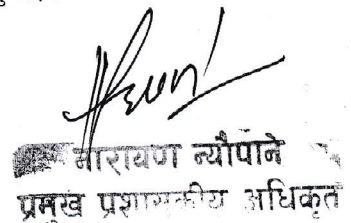 नारायण न्यौपाने
प्रमुख प्रशासकीय अधिकृत